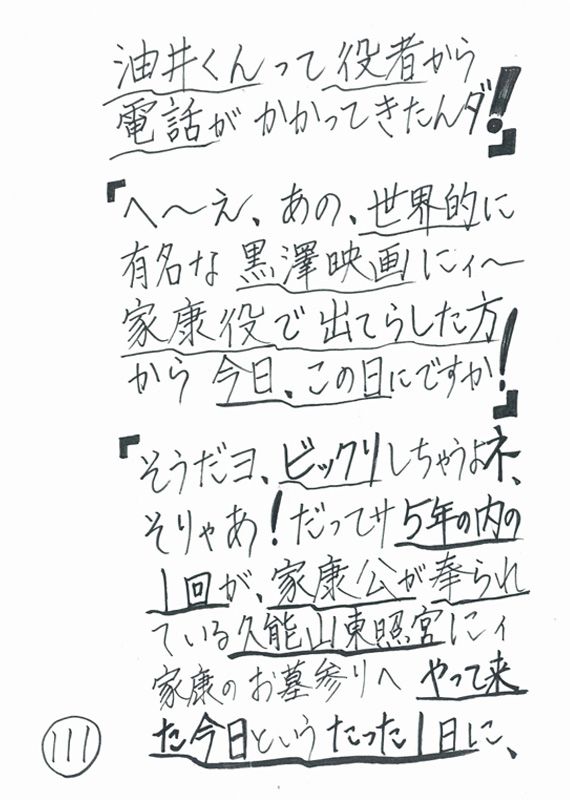 油井くんって役者から
電話がかかってきたんダ!」
「へ〜え、あの、世界的に
有名な黒澤映画にィ〜
家康役で出てらした方
から今日、この日にですか!」
「そうだヨ、ビックリしちゃうよネ、
そりゃあ!だってサ5年の内の
1回が、家康公が奉られ
ている久能山東照宮にィ
家康のお墓参りへやって来
た今日というたった1日に、
111